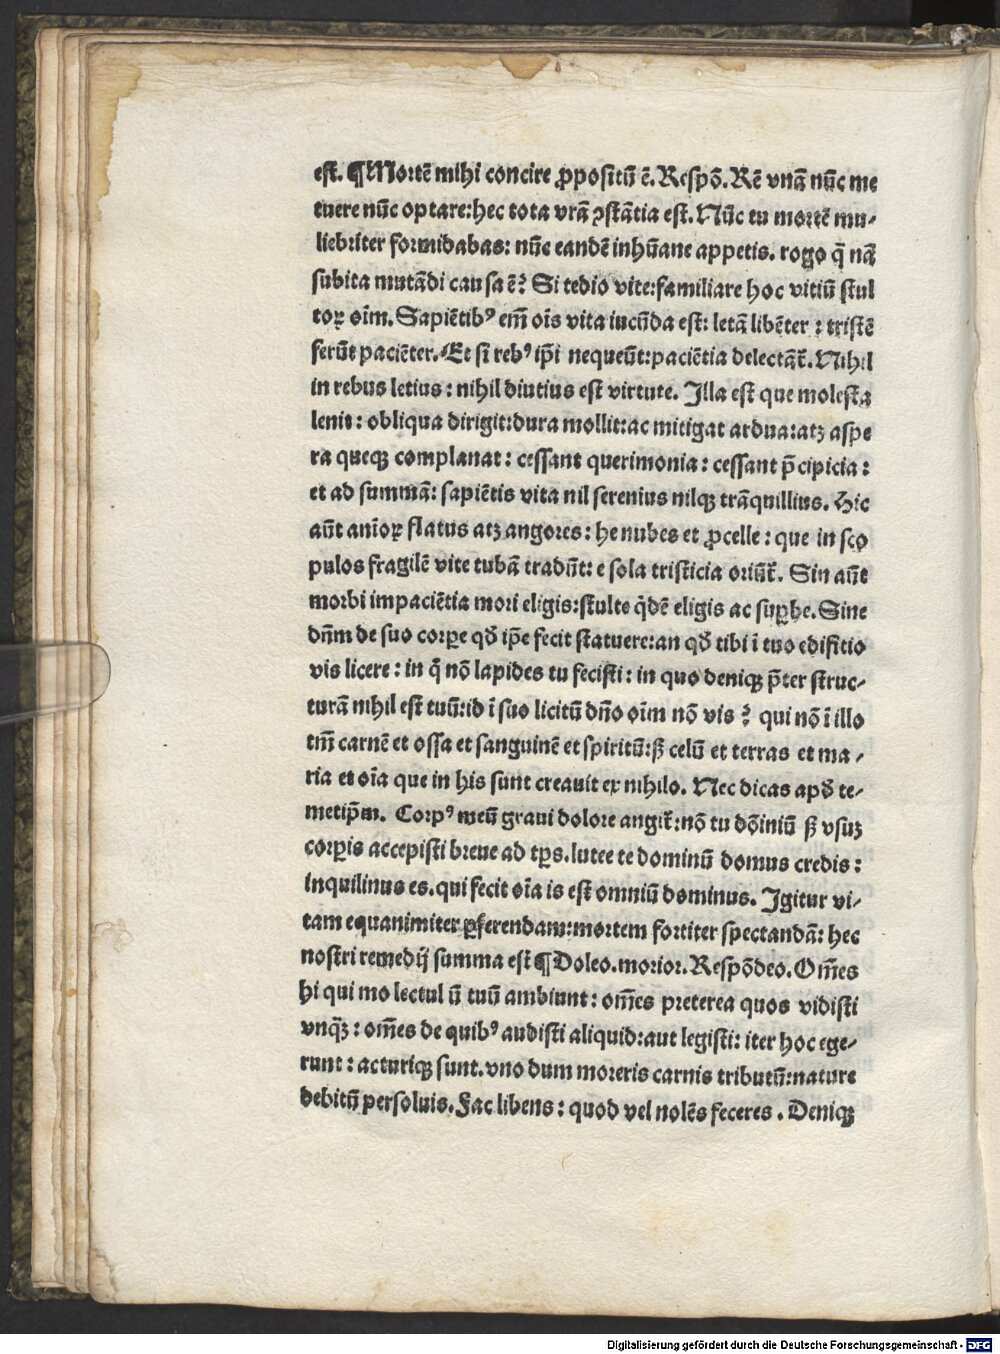 est. ¶Mortē mihi concire ꝓpositū ē. Respō. Rē vnā nūc me
tuere nūc optare: hec tota vrā ꝯstātia est. Nūc tu mortē mu-
liebriter formidabas: nūc eandē inhūane appetis. rogo q̄ nā
subita mutādi causa ē? Si tedio vite: familiare hoc vitiū stul
toꝝ oīm. Sapiētibꝰ em̄ oīs vita iucūda est: letā libēter: tristē
ferūt paciēter. Et si rebꝰ ip̄i nequeūt: paciētia delectāt᷑. Nihil
in rebus letius: nihil diutius est virtute. Illa est que molesta
lenit: obliqua dirigit: dura mollit: ac mitigat ardua: atꝫ aspe
ra queqꝫ complanat: cessant querimonia: cessant p̄cipicia:
et ad summā: sapiētis vita nil serenius nilqꝫ trāquillius. Hic
aūt anīoꝝ flatus atꝫ angores: he nubes et ꝓcelle: que in sco
pulos fragilē vite tubā tradūt: e sola tristicia oriūt᷑. Sin aūt
morbi impaciētia mori eligis: stulte q̇dē eligis ac suꝑbe. Sine
dn̄m de suo corꝑe qđ ip̄e fecit statuere: an qđ tibi ī tuo edifitio
vis licere: in q̄ nō lapides tu fecisti: in quo deniqꝫ p̄ter struc-
turā nihil est tuū: id ī suo licitū dn̄o oīm nō vis? qui nō ī illo
tm̄ carnē et ossa et sanguinē et spiritū: sꝫ celū et terras et ma-
ria et oīa que in his sunt creauit ex nihilo. Nec dicas apđ te-
metip̄m. Corpꝰ meū graui dolore angit᷑: nō tu dōiniū sꝫ vsuꝫ
corꝑis accepisti breue ad tp̄s. lutee te dominū domus credis:
inquilinus es. qui fecit oīa is est omniū dominus. Igitur vi-
tam equanimiter ꝑferendam: mortem fortiter spectandā: hec
nostri remedij summa est ¶Doleo. morior. Respōdeo. Om̄es
hi qui mo lectul ū tuū ambiunt: om̄es preterea quos vidisti
vnqꝫ̄: om̄es de quibꝰ audisti aliquid: aut legisti: iter hoc ege-
runt: acturiqꝫ sunt. vno dum moreris carnis tributū: nature
debitū persoluis. Fac libens: quod vel nolēs feceres. Deniqꝫ
Digitalisierung gefördert durch die Deutsche Forschungsgemeinschaft - DFG